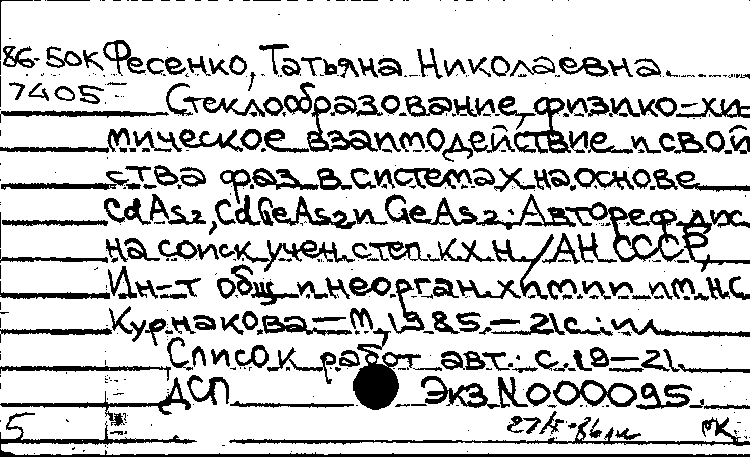 86-50К Фесенко, Татьяна Николаевна.
7405 Стеклообразование, физико-хи-
мическое взаимодействие и свой
ства фаз в системах на основе
CdAs2, CdGeAs2 и GeAs2: Автореф. дис.
на соиск. учен. степ. к.х.н. / АН СССР,
Ин-т общ. и неорган. химии им. Н.С.
Курнакова. — М., 1985. — 21 с.: ил.
Список работ авт.: с. 19—21.
ДСП. Экз. N 000095.
5